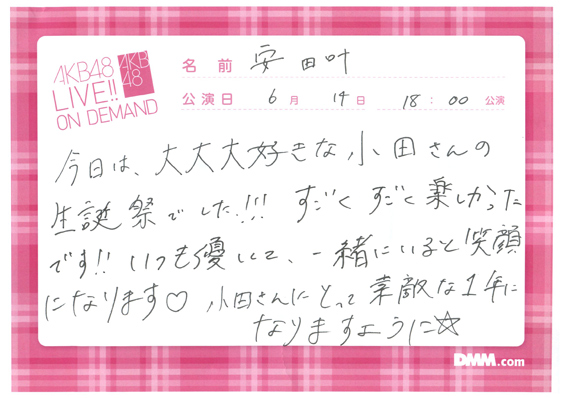 AKB48
LIVE!!
ON DEMAND
AKB
48
名前 安田叶
公演日 6月 14日 18:00 公演
今日は、大大大好きな小田さんの
生誕祭でした!!! すごくすごく楽しかった
です!! いつも優しくて、一緒にいると笑顔
になります♡ 小田さんにとって素敵な1年に
なりますように☆
DMM.com